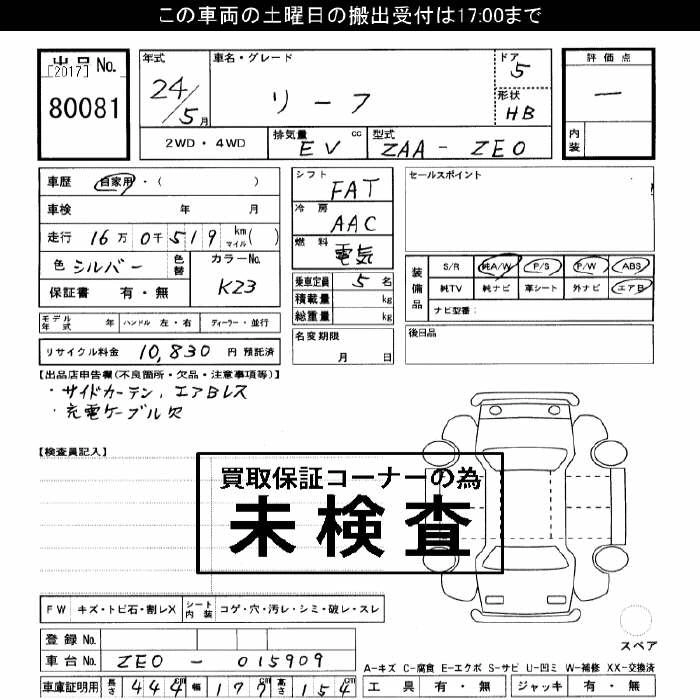 この車両の土曜日の搬出受付は17:00まで
出品 No.
[2017]
80081
年式
24/5月
車名・グレード
リーフ
ドア
5
形状
HB
評価点
―
内装
2WD・4WD
排気量 cc
EV
型式
ZAA - ZE0
車歴 自家用・( )
車検 年 月
走行 16万0千519 km マイル( )
色 シルバー 色替
カラーNo.
K23
保証書 有・無
モデル年式 年 ハンドル 左・右 ディーラー・並行
リサイクル料金 10,830 円 預託済
シフト
FAT
冷房
AAC
燃料
電気
乗車定員 5 名
積載量 kg
総重量 kg
名変期限
月 日
セールスポイント
装備品
S/R 純A/W P/S P/W ABS
純TV 純ナビ 革シート 外ナビ エアB
ナビ型番:
後日品
【出品店申告欄(不良箇所・欠品・注意事項等)】
・サイドカーテン、エアBレス
・充電ケーブル欠
【検査員記入】
買取保証コーナーの為
未検査
FW キズ・トビ石・割レX シート内装 コゲ・穴・汚レ・シミ・破レ・スレ
登録 No.
車台 No. ZE0 - 015909
車庫証明用 長さ 444 cm 幅 177 cm 高さ 154 cm
スペア
A-キズ C-腐食 E-エクボ S-サビ U-凹ミ W-補修 XX-交換済
工具 有・無 ジャッキ 有・無